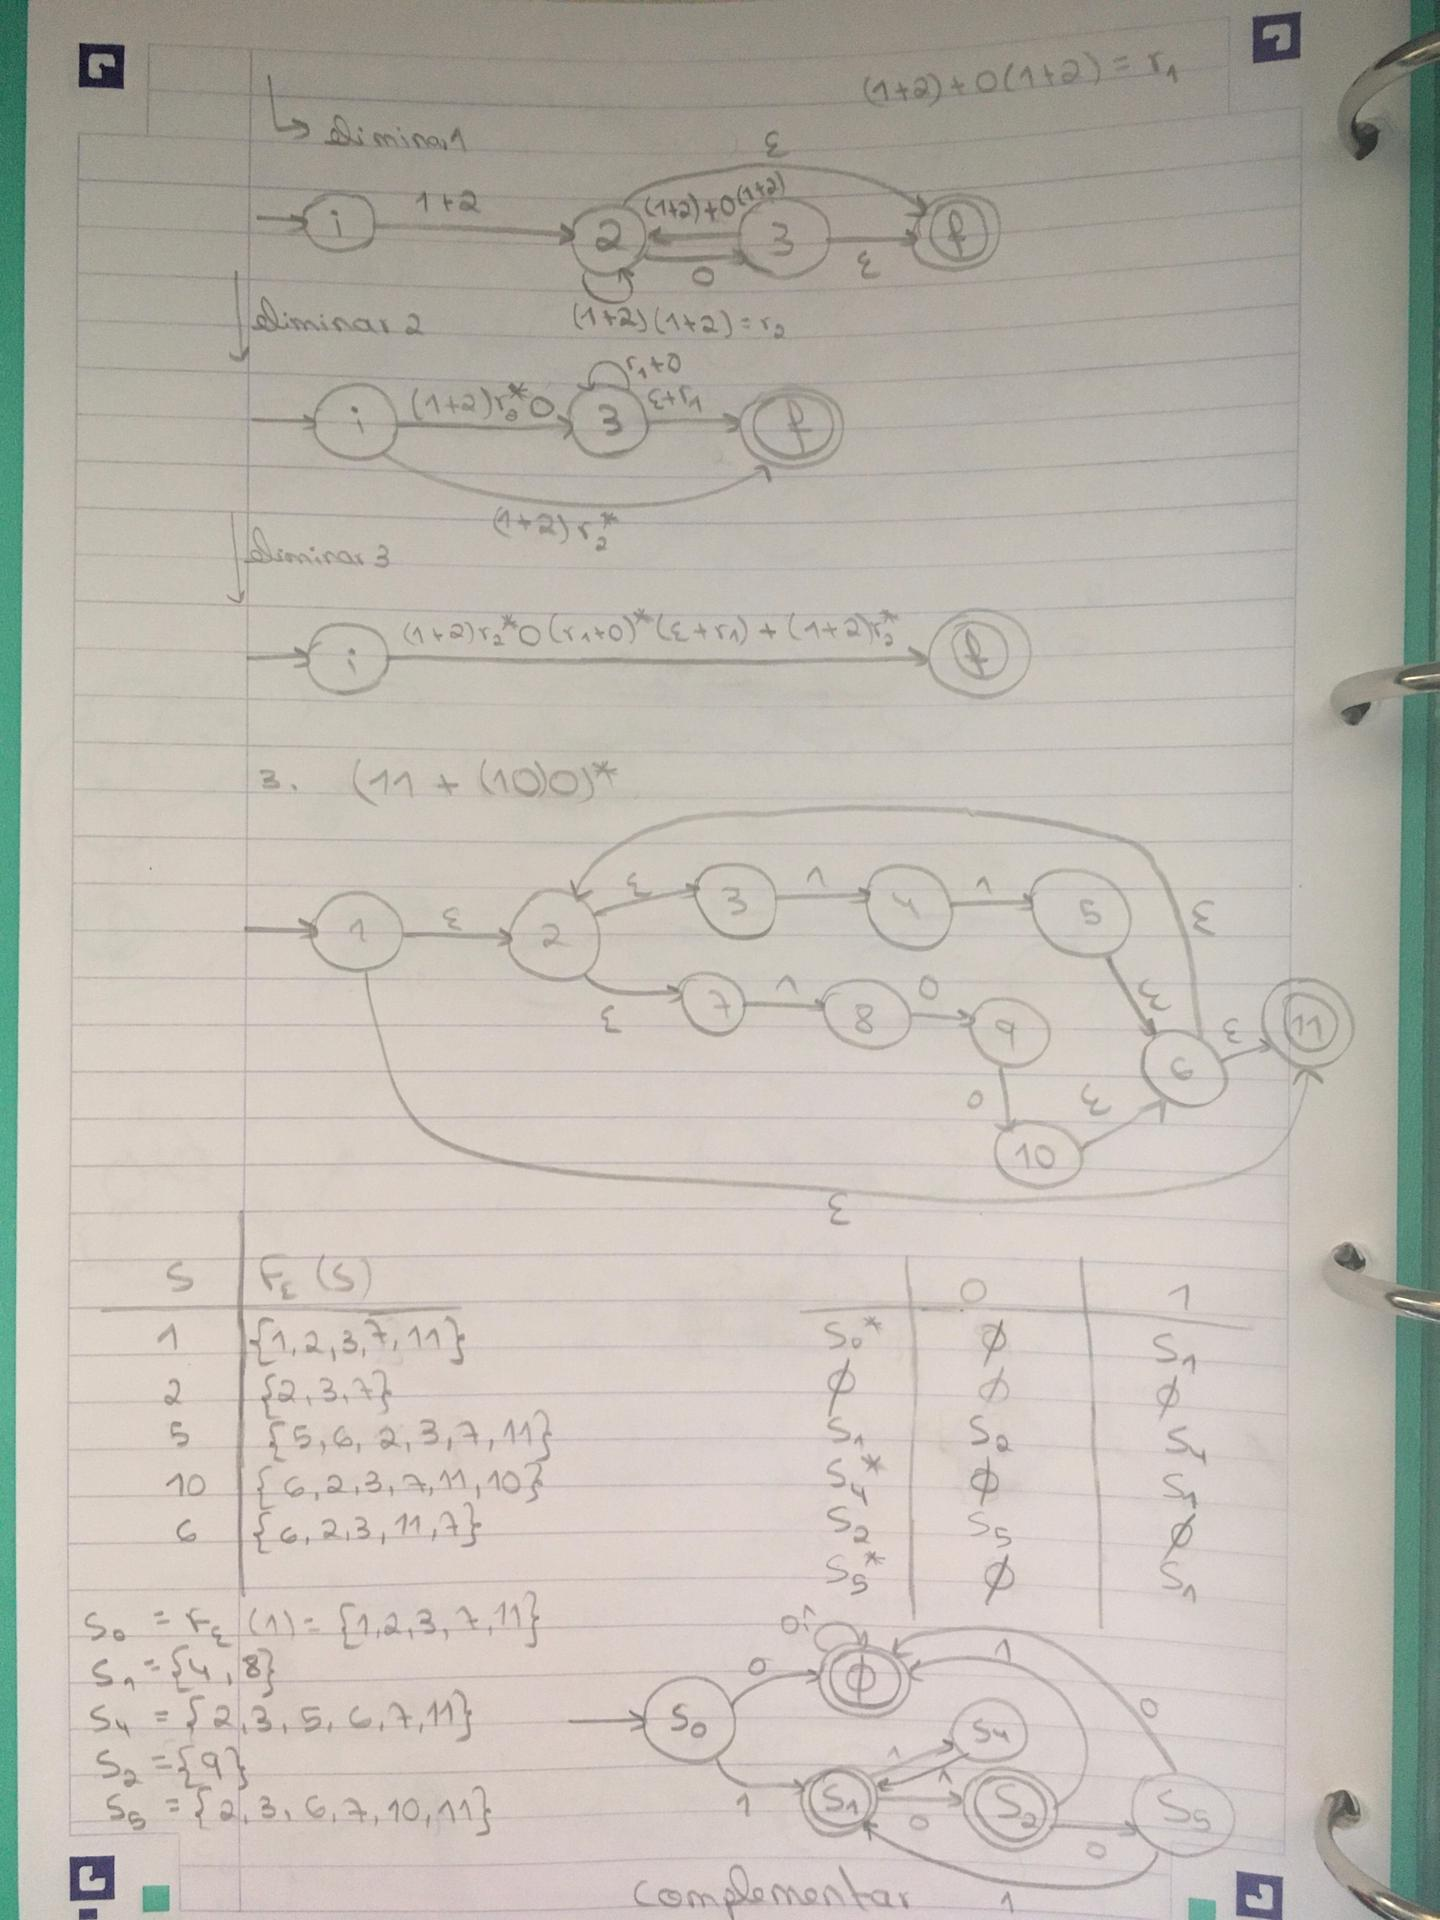 (1+2)+0(1+2) = r₁
eliminar 1
ε
1+2
(1+2)+0(1+2)
i 2 3 f
0 ε
eliminar 2
(1+2)(1+2) = r₂
r₁+0
(1+2)r₂*0 ε+r₁
i 3 f
(1+2)r₂*
eliminar 3
(1+2)r₂*0(r₁+0)*(ε+r₁)+(1+2)r₂*
i f
3. (11 + (10)0)*
ε 1 1
3 4 5
1 ε 2 ε
ε 7 1 8 0 9 ε 11
6 ε
0 ε
10
ε
S Fε(S)
1 {1,2,3,7,11}
2 {2,3,7}
5 {5,6,2,3,7,11}
10 {6,2,3,7,11,10}
6 {6,2,3,11,7}
0 1
S₀* ∅ S₁
∅ ∅ ∅
S₁ S₂ S₄
S₄* ∅ S₁
S₂ S₅ ∅
S₅* ∅ S₁
S₀ = Fε(1) = {1,2,3,7,11}
S₁ = {4,8}
S₄ = {2,3,5,6,7,11}
S₂ = {9}
S₅ = {2,3,6,7,10,11}
0,1
0 ∅ 1
S₀ S₄ 0
1 1
1 S₁ 0 S₂ 0 S₅
complementar 1